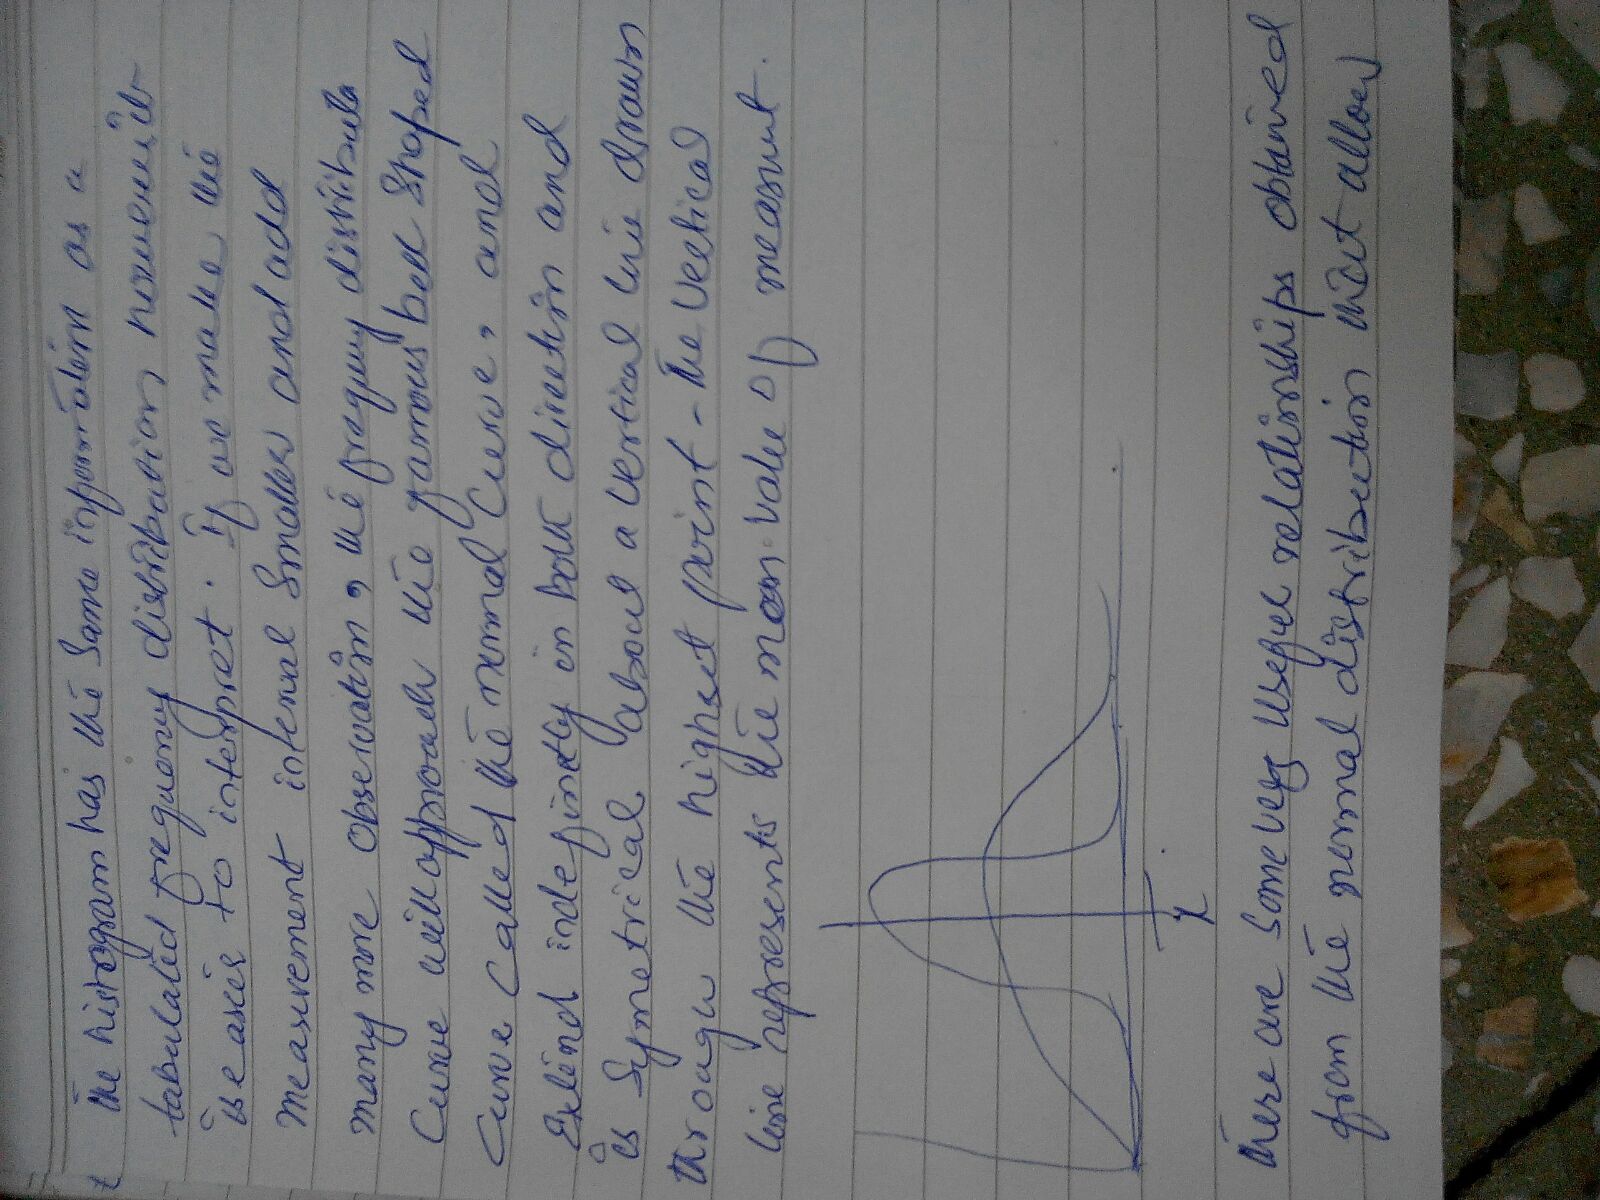 The histogram has the same information as a
tabulated frequency distribution however it
is easier to interpret. If we make the
measurement interval smaller and add
many more observation, the frequency distributa
Curve will approach the famous bell shaped
Curve Called the normal Curve, and
Extend indefinetly in both direction and
is Symetrical about a vertical line drawn
through the highset point - The Vertical
line represents the mean value of measumt.
x
There are some very useful relationships obtained
from the normal distribution that allow